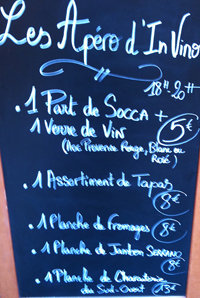 Les Apéro d'In Vino
18H-20H
.1 Part de Socca +
1 Verre de Vin 5€
(Aoc Provence Rouge, Blanc ou
Rosé)
.1 Assortiment de Tapas
8€
.1 Planche de Fromages 8€
.1 Planche de Jambon Serrano
8€
.1 Planche de Charcuterie
du Sud-Ouest 15€